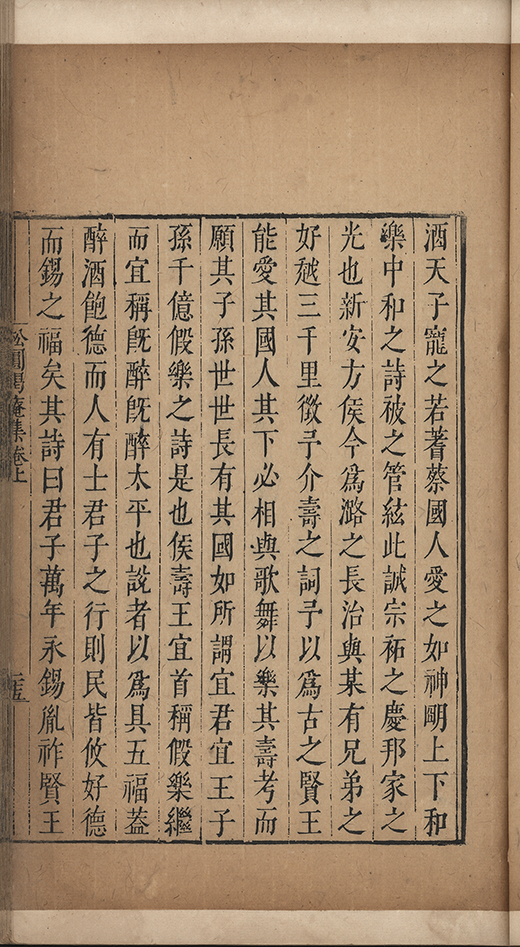 酒天子寵之若蓍蔡國人愛之如神明上下和
樂中和之詩被之管絃此誠宗祏之慶邦家之
光也新安方侯今爲潞之長治與某有兄弟之
好越三千里徵予介壽之詞予以爲古之賢王
能愛其國人其下必相與歌舞以樂其壽考而
願其子孫世世長有其國如所謂宜君宜王子
孫千億假樂之詩是也侯壽王宜首稱假樂繼
而宜稱旣醉旣醉太平也說者以爲具五福葢
醉酒飽德而人有士君子之行則民皆攸好德
而錫之福矣其詩曰君子萬年永錫胤祚賢王
松圓偈庵集卷上